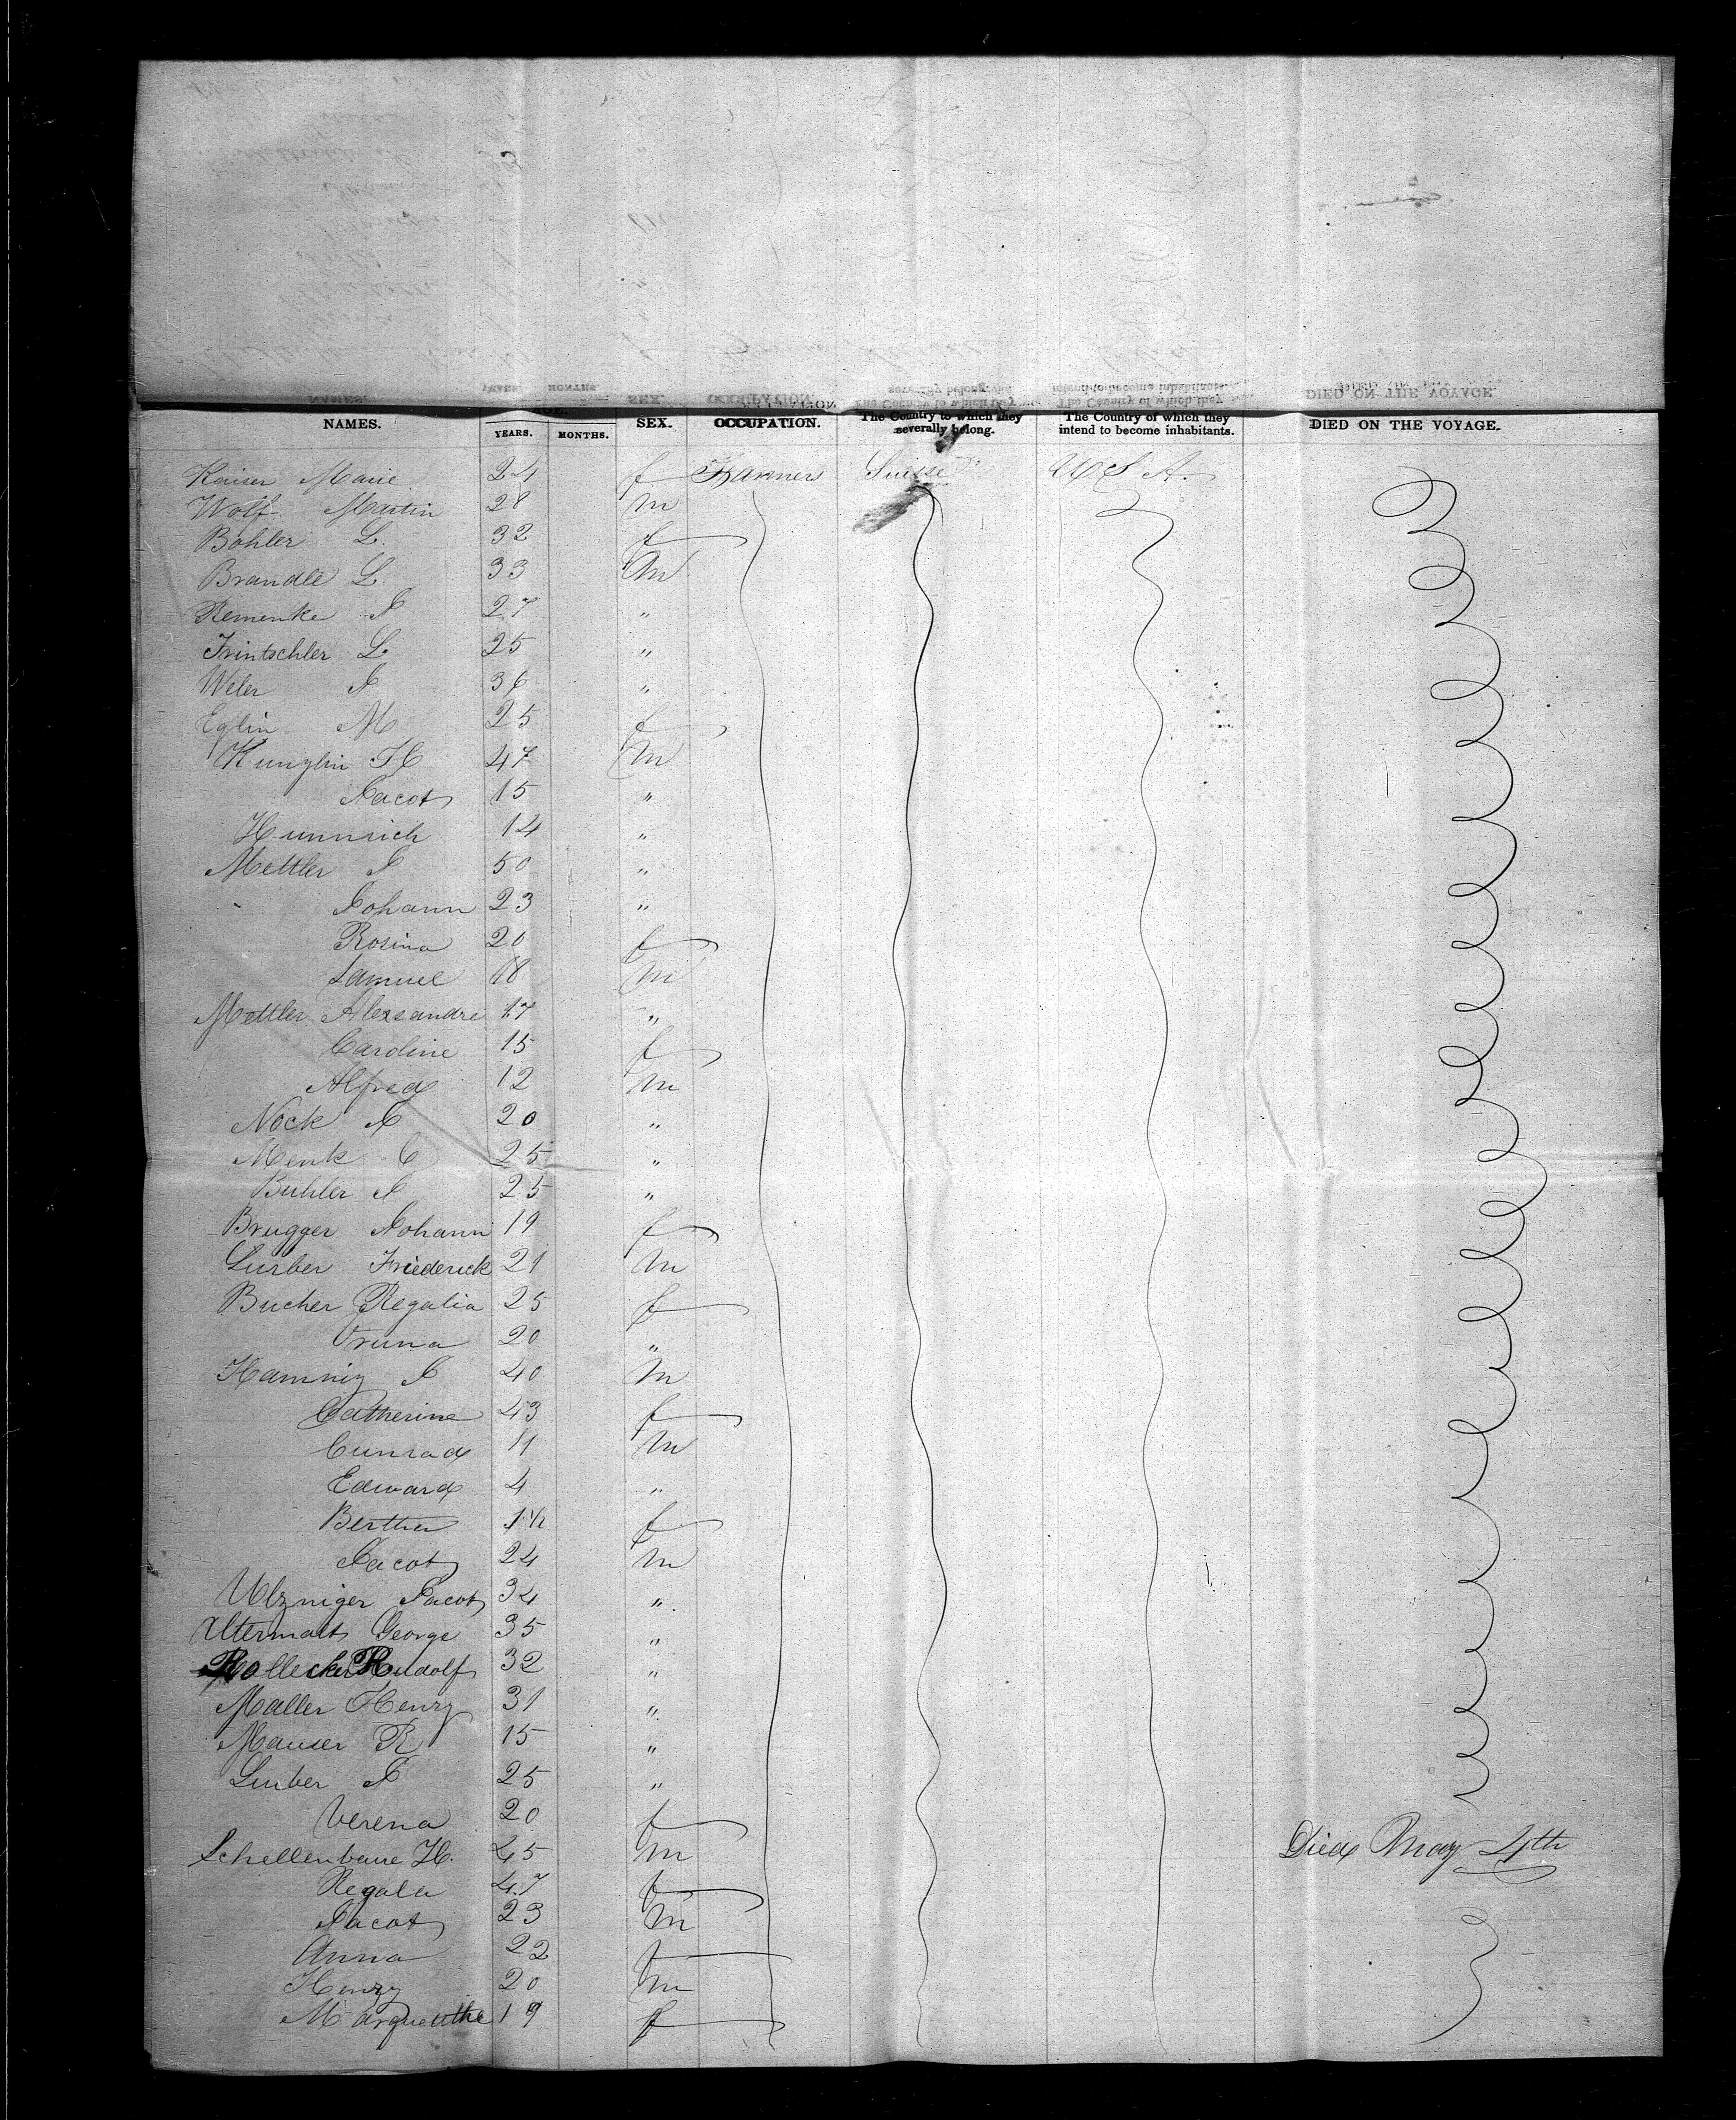 NAMES. YEARS. MONTHS. SEX. OCCUPATION. The Country to which they severally belong. The Country of which they intend to become inhabitants. DIED ON THE VOYAGE.
Kaiser Marie 24 f Farmers Suisse U S A.
Wolf Martin 28 m
Bohler L. 32 f
Brandle L 33 m
Remenke J 27 "
Frintschler L. 25 "
Weler J 36 "
Eglin M 25 f
Kunzlin H 47 m
Jacob 15 "
Hunnrich 14 "
Mettler J 50 "
" Johann 23 "
Rosina 20 f
Samuel 18 m
Mettler Alexsandre 17 "
Caroline 15 f
Alfred 12 m
Nock J 20 "
Menk C 25 "
Buhler J 25 "
Brugger Johann 19 f
Lurber Friederick 21 m
Bucher Regalia 25 f
Vruna 20 "
Hamnig J 40 m
Catherine 43 f
Cunrad 11 m
Edward 4 "
Bertha 1½ f
Jacob 24 m
Ulzniger Jacob 34 "
Altermatt George 35 "
Rollecker Rudolf 32 "
Maller Henry 31 "
Mauser R 15 "
Lurber J 25 "
Verena 20 f
Schellenbaue H. 45 m Died May 4th
Regala 47 f
Jacob 23 m
Anna 22 f
Henry 20 m
Marguetthe 19 f